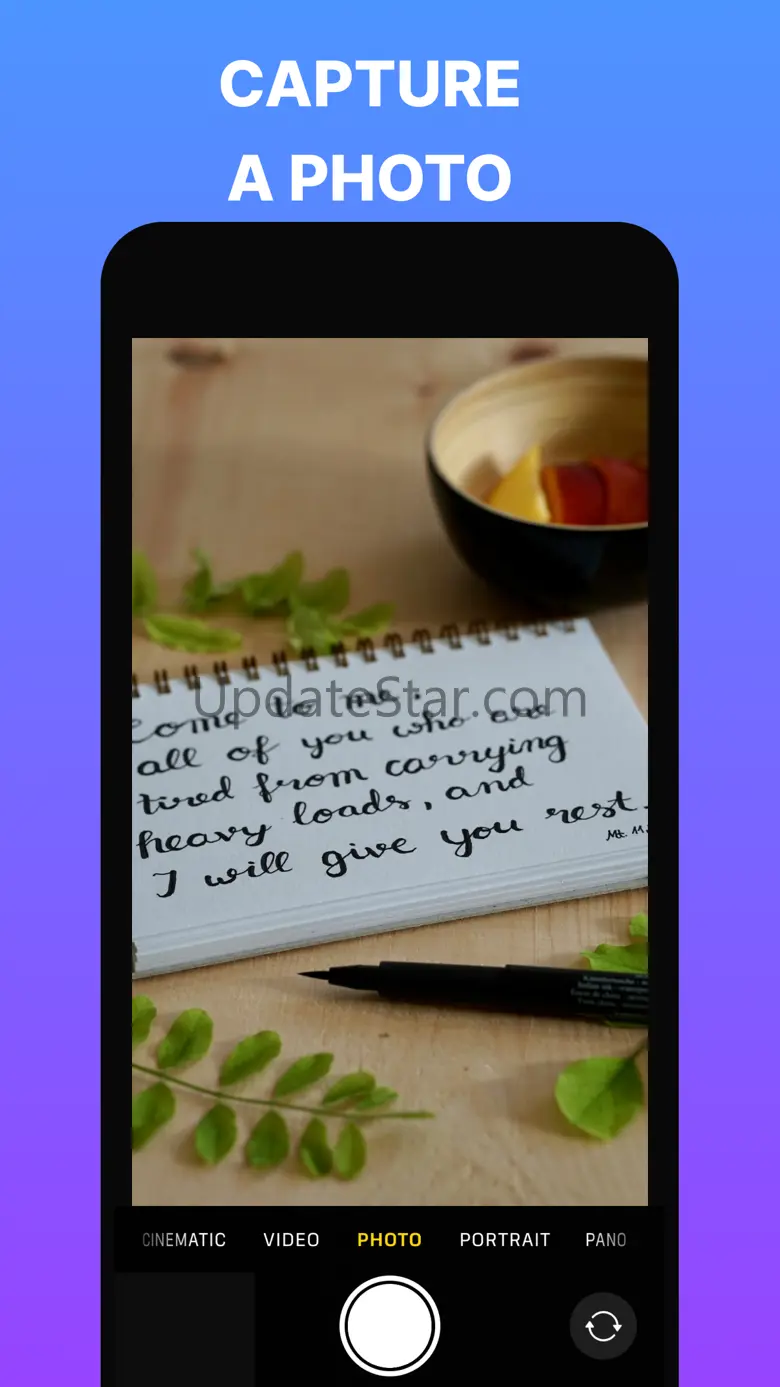 CAPTURE
A PHOTO
UpdateStar.com
Come to me.
all of you who are
tired from carrying
heavy loads, and
I will give you rest.
Mt. 11
CINEMATIC VIDEO PHOTO PORTRAIT PANO